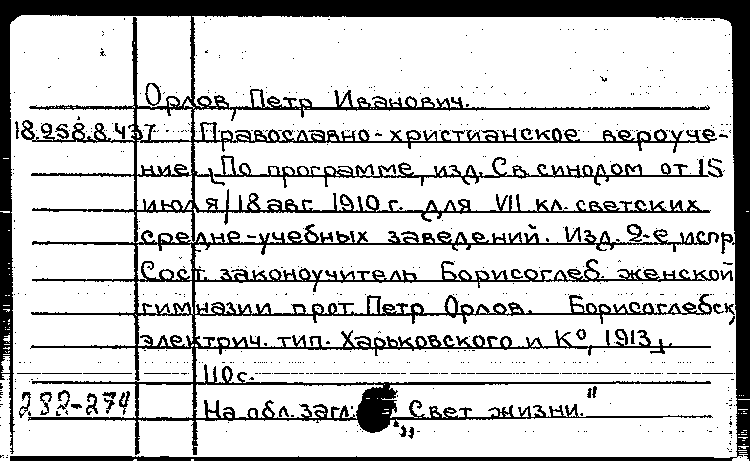 Орлов, Петр Иванович.
18.258.8.437 Православно-христианское вероуче-
ние. [По программе, изд. Св. синодом от 15
июля/18 авг. 1910 г. для VII кл. светских
средне-учебных заведений. Изд. 2-е, испр.
Сост. законоучитель Борисоглеб. женской
гимназии прот. Петр Орлов. Борисоглебск,
электрич. тип. Харьковского и К°, 1913].
110 с.
282-274 На обл. загл.: „Свет жизни."